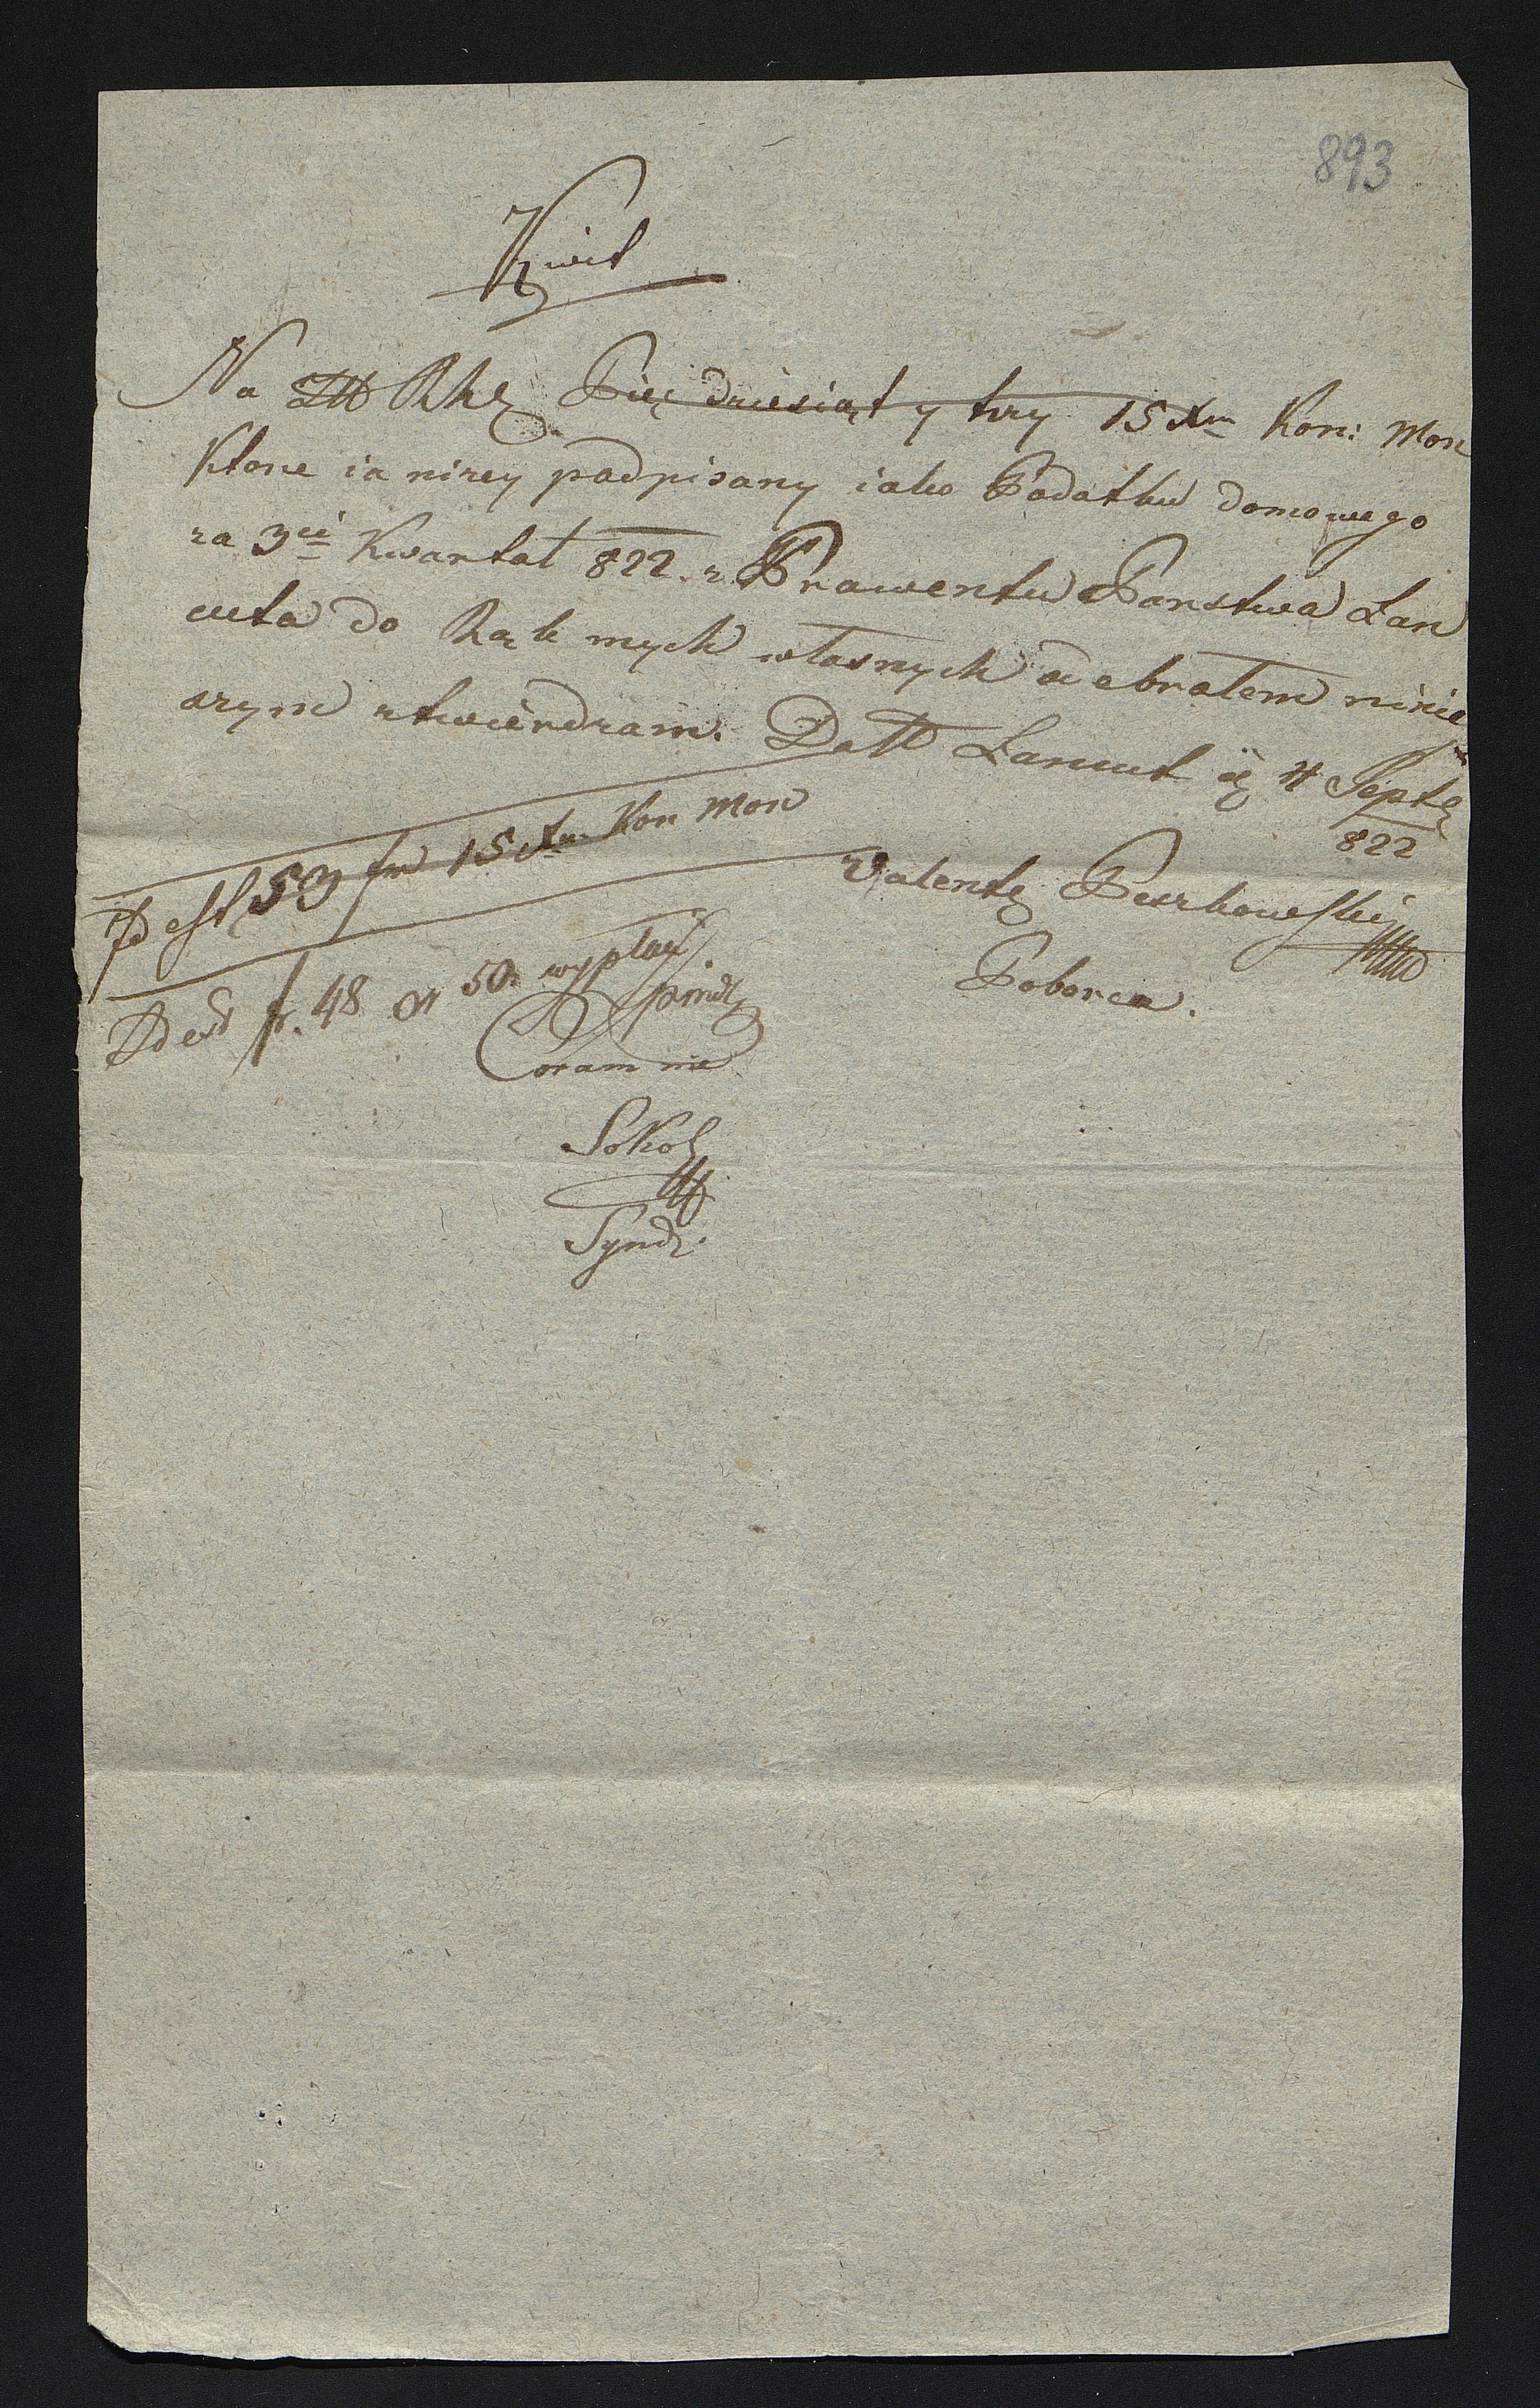 893
Kwit
Na Złt Rhe Pięcdziesiąt y trzy 15 Xrn Kon: Mon
Ktore ia nizey podpisany iako Podatku domowego
za 3ci Kwartał 822. z Prowentu Panstwa Łan
cuta do Rąk mych własnych odebrałem ninie
szym ztwierdzam. Datt Łancut 4 Septe
822
Id est 53 fr 15 Xr Kon Mon
Valenty
Poborca.
Id est fr. 48 50. wypłaci
Coram me
Sokol
Synd.